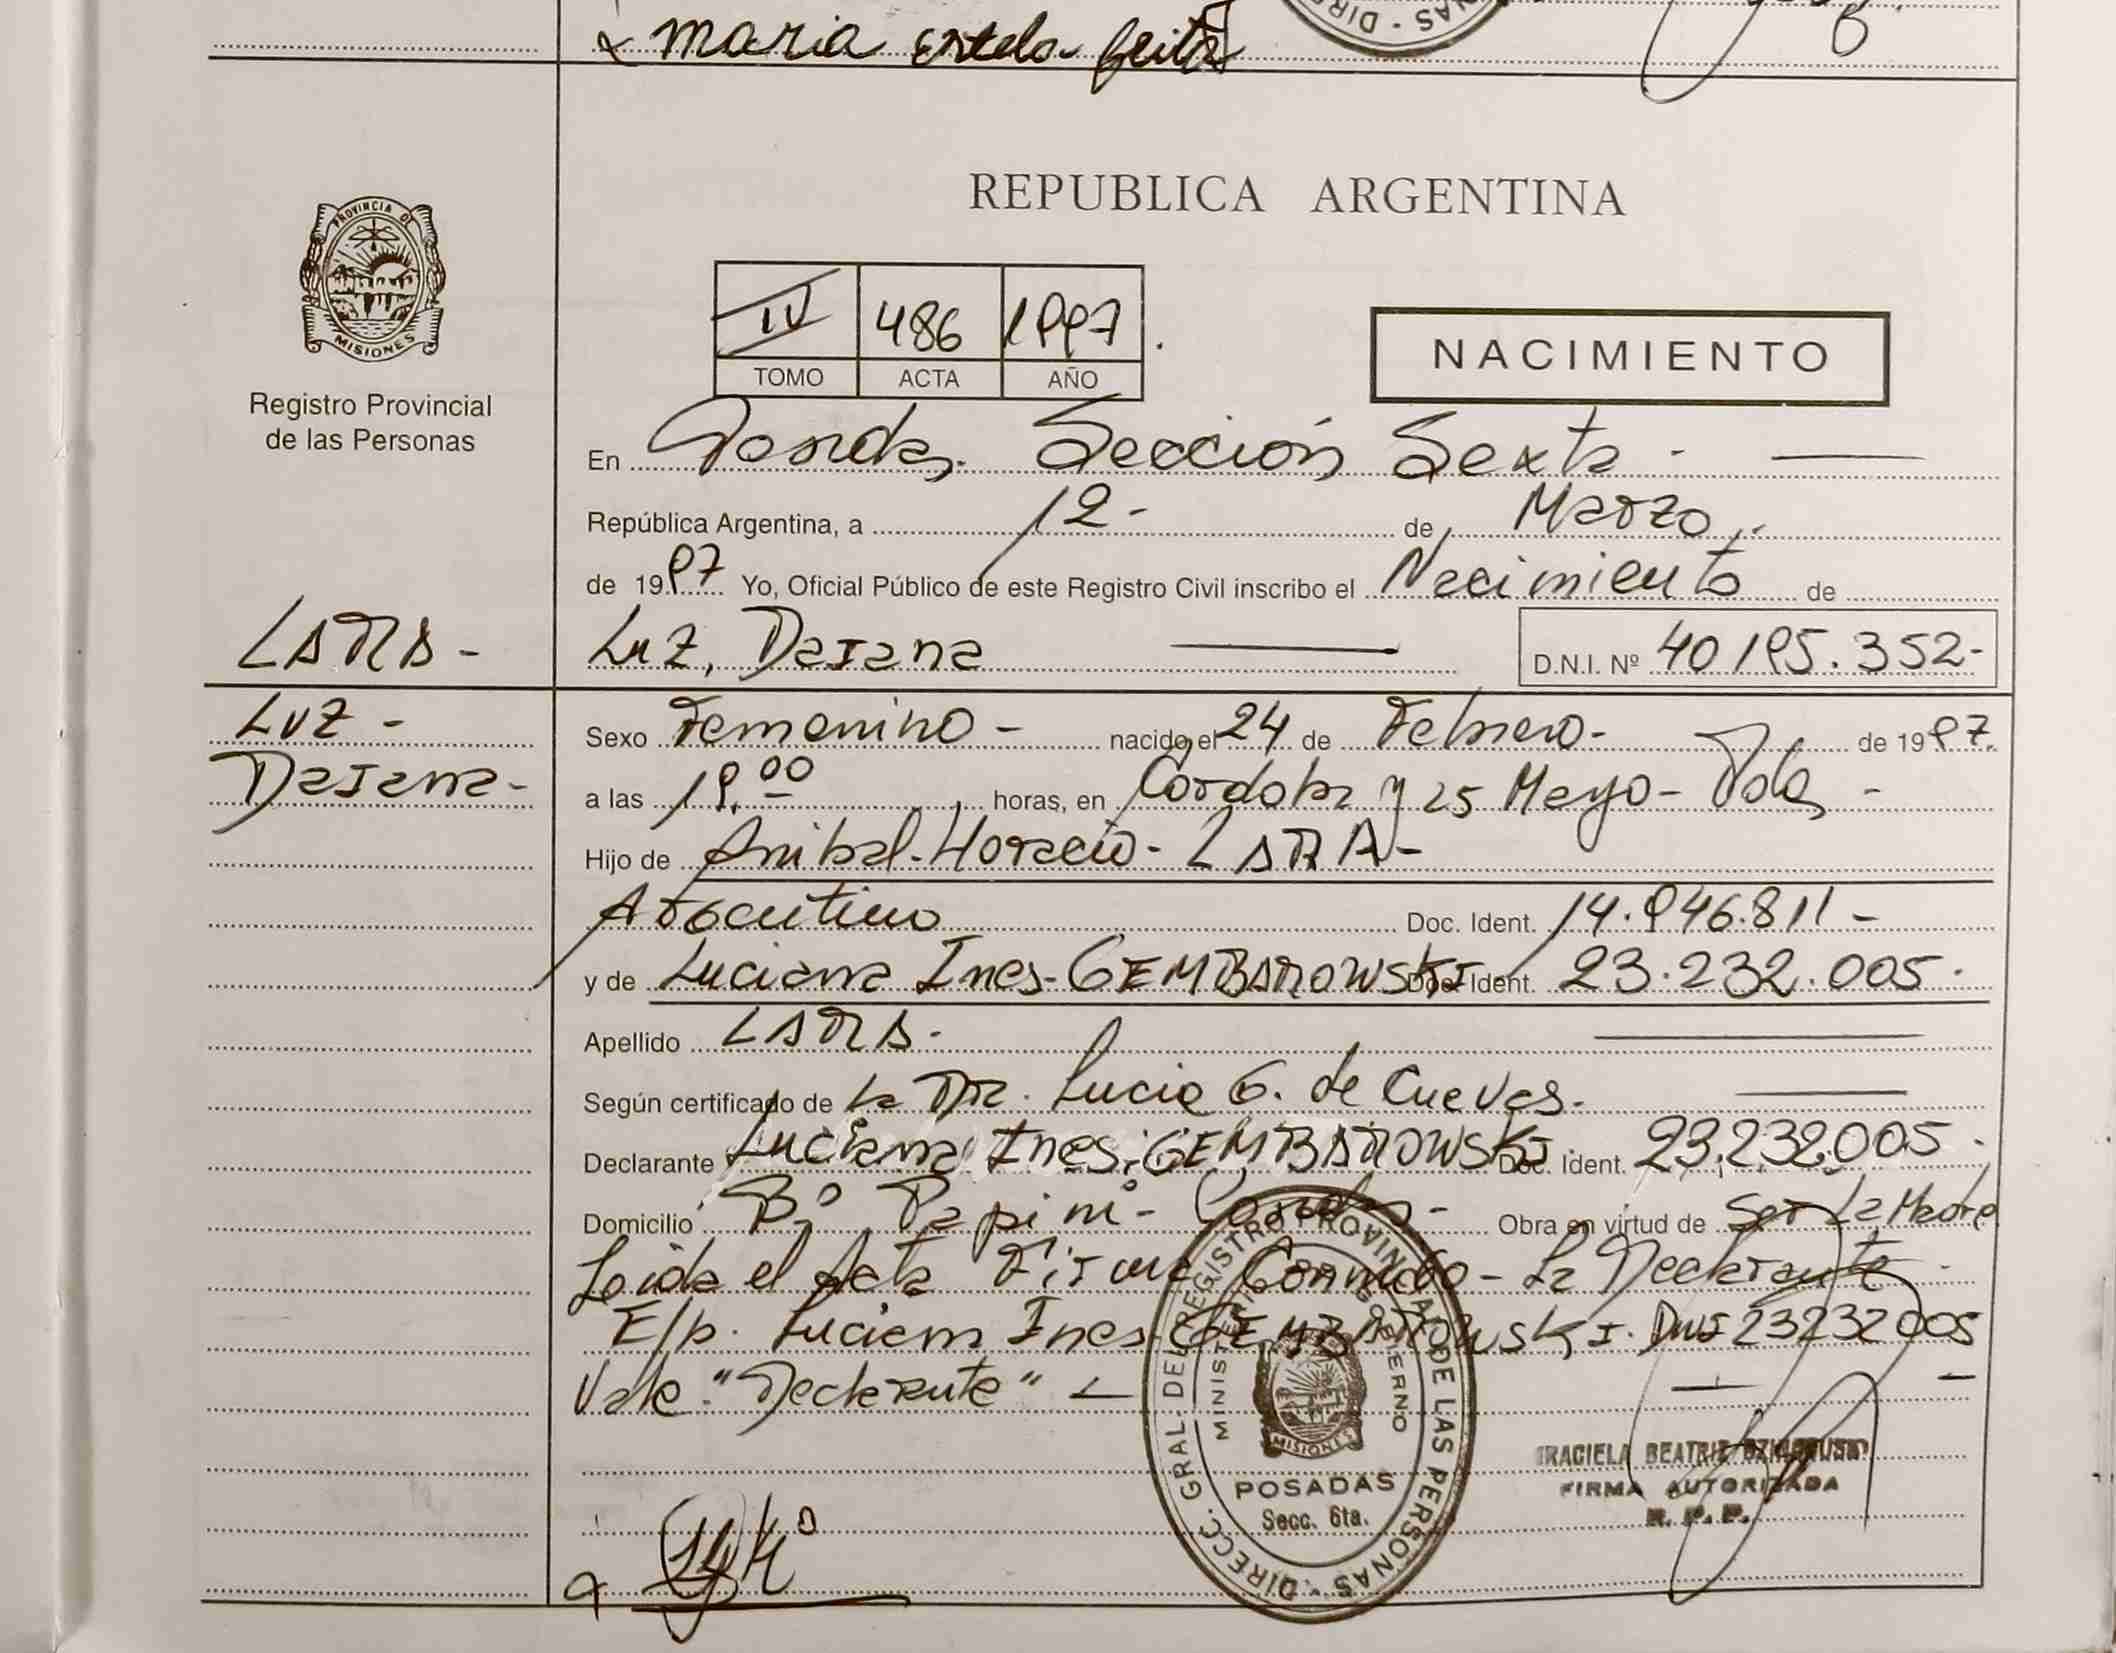 x maria estela
DIRECC. - PERSONAS
REPUBLICA ARGENTINA
PROVINCIA DE
MISIONES
Registro Provincial
de las Personas
IV 486 1997.
TOMO ACTA AÑO
NACIMIENTO
En Posadas. Sección Sexta -
República Argentina, a 12- de Marzo.-
de 1997 Yo, Oficial Público de este Registro Civil inscribo el Nacimiento de
LARA - Luz, Daiana D.N.I. Nº 40195.352-
Luz - Sexo Femenino - nacido el 24 de Febrero- de 1997.
Daiana - a las 19.00 horas, en Córdoba y 25 Mayo - Pdas -
Hijo de Anibal-Horacio- LARA-
Argentino Doc. Ident. 14.946.811 -
y de Luciana Ines- GEMBAROWSKI Doc. Ident. 23.232.005.
Apellido LARA.
Según certificado de la Dra. Lucia G. de Cuevas.
Declarante Luciana Ines. GEMBAROWSKI Doc. Ident. 23.232.005.
Domicilio Bº Papini- Posadas- Obra en virtud de Ser La Madre
Leida el Acta Firma Conmigo - La Declarante -
E/p. Luciana Ines GEMBAROWSKI. DNI 23232005
Vale "Declarante" -
DIRECC. GRAL. DEL REGISTRO PROVINCIAL DE LAS PERSONAS
MINISTERIO GOBIERNO
MISIONES
POSADAS
Secc. 6ta.
GRACIELA BEATRIZ
FIRMA AUTORIZADA
R. P. P.